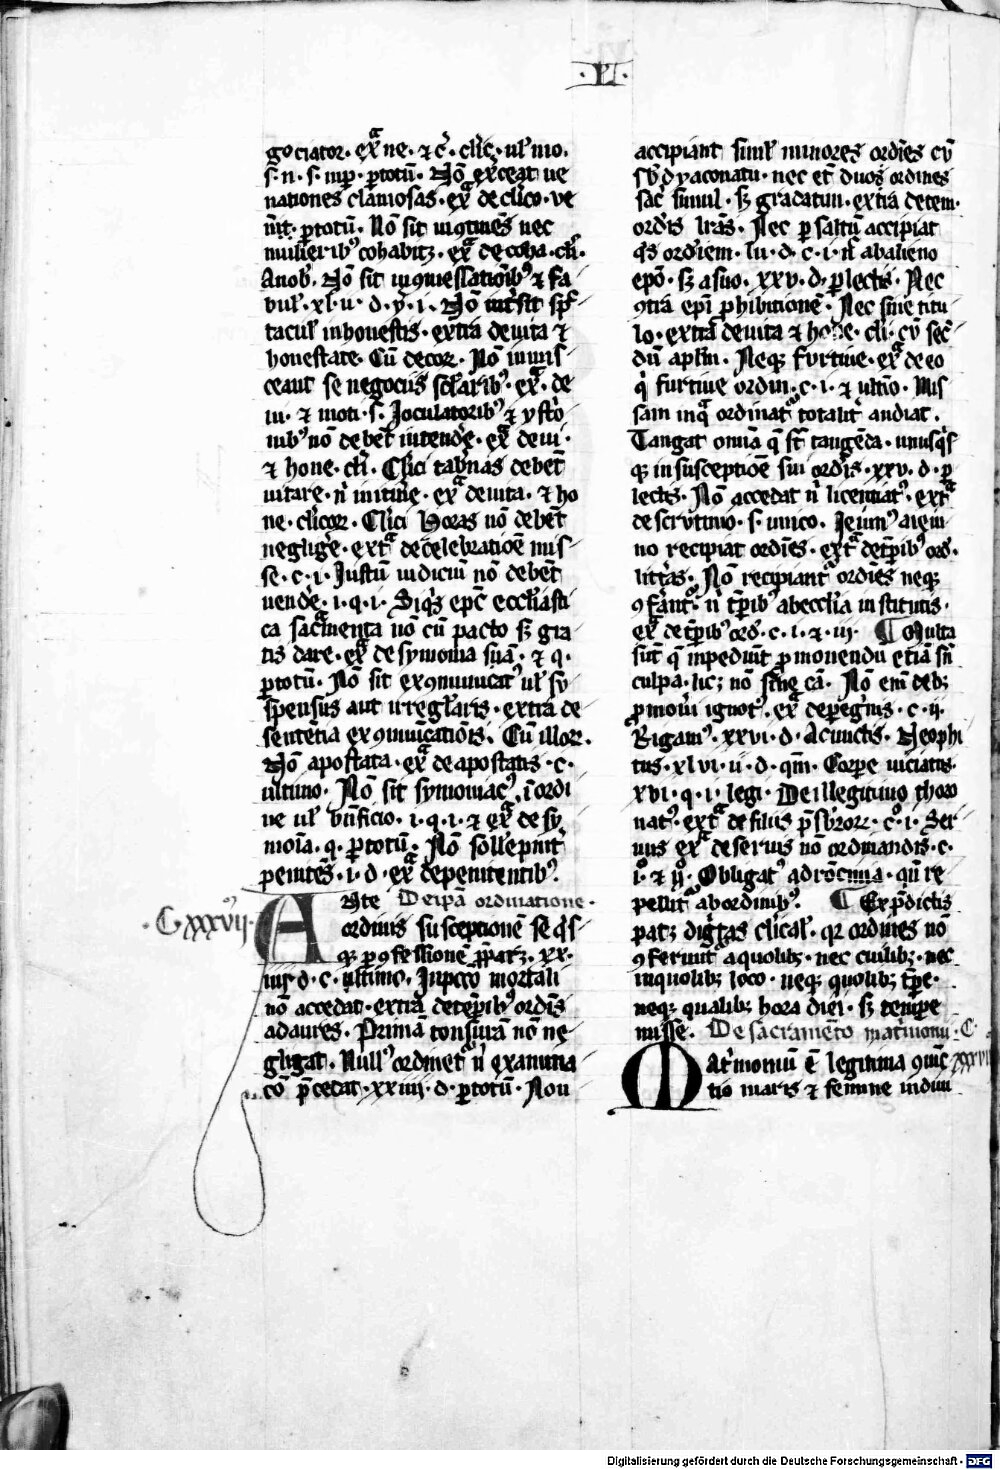 ·VI·
gociator· exͣ ne· ⁊ c̄· cleric̄· ul' mo·
s· n· s· mp̱· ꝑtotū· Nō exerceat ue
nationes clamosas· exͣ de clico· ue
nāt̄· ꝑtotū· Nō sit in ꝯtinēs nec
mulierib⁹ cohabitꝫ· exͣ de coha· cli·
Nō sit in ꝯuessatiōib⁹ ⁊ fa
bul'· xl·ii· d· Nō int'sit spc̄
tacul' inhonestis· extra de uita ⁊
honestate· Cū decor· Nō inmis
ceant se negociis sclarib⁹· exͣ· de
ui· ⁊ moti· s· Joculatorib⁹ ⁊ ystō
nib⁹ nō debēt intend'e· exͣ de ui·
⁊ hone· cli· Clici tab'nas debēt
uitare· n' in itin'e· exͣ de uita· ⁊ ho
ne· clicor· Clici horas nō debēt
neglig'e· extͣ de celebratiōe mis
se· c· i· Justū iudiciū nō debēt
uend'e· i· q· i· Siq's epc̄ eccl'iasti
ca sacͣmenta nō cū pacto sꝫ gra
tis dare· exͣ de symonia suā· ⁊ q·
ꝑtotū· Nō sit exꝯmunicat⁹ ul' su
spensus aut irregl'aris· extra de
sentētia exꝯmunicatiōis· Cū illor·
Nō apostata· exͣ de apostatis· c·
ultimo· Nō sit symoniac⁹, ī ordi
ne ul' bn̄ficio· i· q· i· ⁊ exͣ de sy
moīa· q· ꝑtotū· Nō sollēpnit'
penitēs· i· d· exͣ de penitentib⁹·
·C xxxvij· Ante De ordinatione·
ordinis susceptionē se q's
qꝫ ꝑ ꝯfessionē p̄patꝫ· xx·
iiij· d· c· ultimo· In pctō mortali
nō accedat· extra de tēp̱ib⁹ ordīs
ad aures· Primā tonsurā nō ne
gligat· Null⁹ ordinet' n' examina
cō p̄cedat· xxiiij· d· ꝑtotū· Non
accipiant siml' minores ordīes cū
sb'dyaconatu· nec et̄ duos ordines
sac' simul· sꝫ gradatim· extra de tem·
ordīs lr̄as· Nec p saltū accipiat
q's ordīem· lii· d· c· i· n' ab alieno
epō· sꝫ a suo· xxv· d· ꝑlectis· Nec
ꝯtra epī ꝓhibitionē· Nec sine titu
lo· extra de uita ⁊ hone· cli· cū sec'
dū aplm̄· Neqꝫ furtiue· exͣ de eo
q' furtiue ordin· c· i· ⁊ ultio· Mis
sam in qͣ ordinat' totalit' audiat·
Tangat omīa q̄ st̄ tangēda· unusq's
qꝫ in susceptiōe sui ordīs· xxv· d· ꝑ
lectis· Nō accedat n' licentiat⁹· extͣ
de scrutinio· s· unico· Jeiun⁹ a ieiu
no recipiat ordīes· extͣ de tp̄ib⁹ ord·
litt'as· Nō recipiant' ordīes neqꝫ
ꝯferant' n' tp̄ib⁹ ab eccl'ia institutis·
exͣ de tp̄ib⁹ ord· c· i· ⁊ iij· ¶ Multa
sūt q̄ inpediūt ꝓmouendū etiā sn̄
culpa· lic; nō sine cā· Nō enī debꝫ
ꝓmoui ignot⁹· exͣ de peg'nis· c· ij·
Rigam⁹· xxvi· d· Acunctis· Neophi
tus· xlvi·ii· d· qm̄· Corpe uiciatus·
xvi· q· i· legi· De illegitimo thoro
nat⁹· extͣ de filiis p̄sb'rorr· c⁰· i· Ser
uus exͣ de seruis nō ordinandis· c·
i⁰· ⁊ ij⁰· Obligat⁹ ad rōcinia· qn̄ re
pellit' ab ordinib⁹· ¶ Ex p̄dictis
patꝫ dig'tas clical'· qr ordines nō
ꝯferunt' a quolibꝫ· nec cuilibꝫ· nec
in quolibꝫ loco· neqꝫ quolibꝫ tp̄e·
neqꝫ qualibꝫ hora diei· sꝫ tempe
misse· De sacramēto matrimonii· C·
Mat'moniū ē legitima ꝯiūc
tio maris ⁊ femine indiui
Digitalisierung gefördert durch die Deutsche Forschungsgemeinschaft · DFG